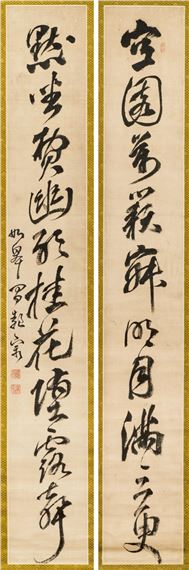 空園萬籟寂明月滿三更
默坐幽桂花墮露聲
如皋冒起宗